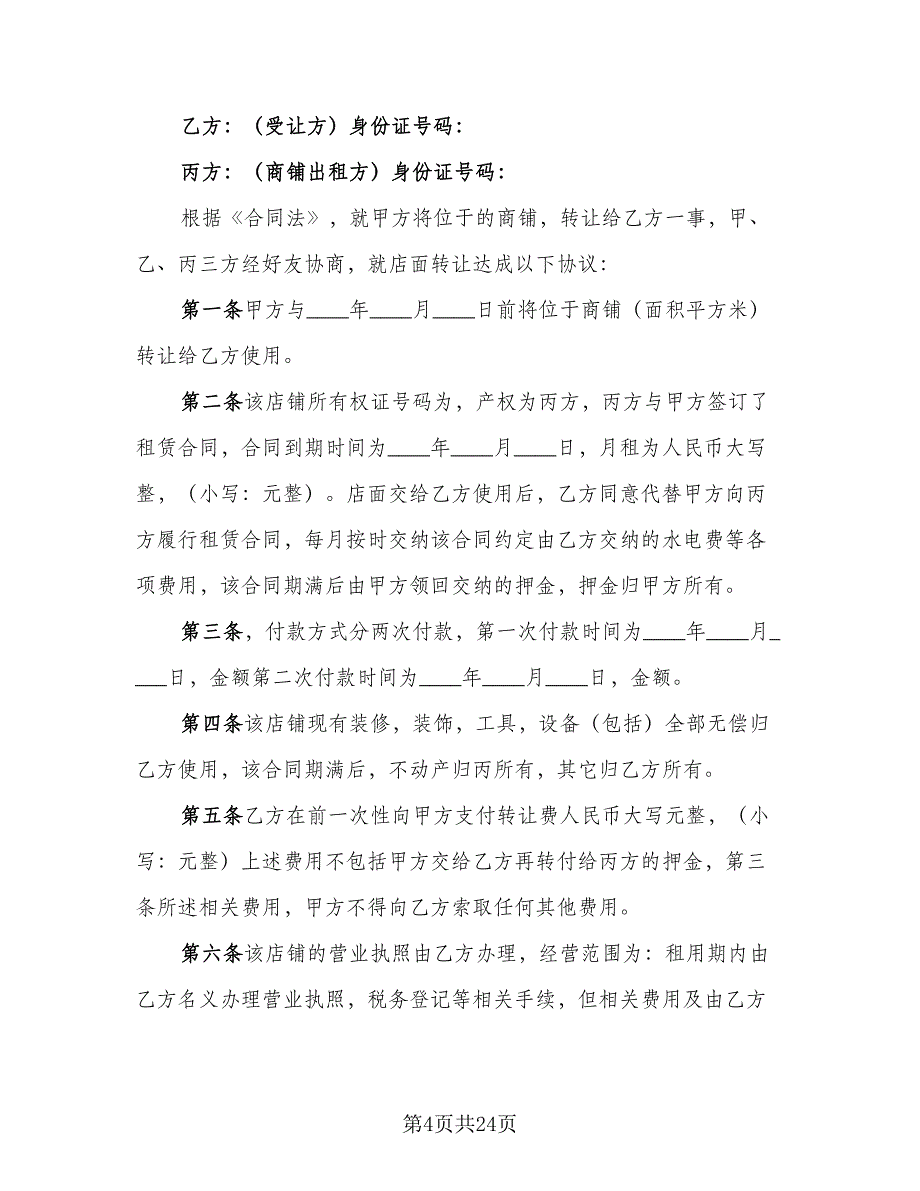 乙方：（受让方）身份证号码：
丙方：（商铺出租方）身份证号码：
根据《合同法》，就甲方将位于的商铺，转让给乙方一事，甲、
乙、丙三方经好友协商，就店面转让达成以下协议：
第一条甲方与____年____月____日前将位于商铺（面积平方米）
转让给乙方使用。
第二条该店铺所有权证号码为，产权为丙方，丙方与甲方签订了
租赁合同，合同到期时间为____年____月____日，月租为人民币大写
整，（小写：元整）。店面交给乙方使用后，乙方同意代替甲方向丙
方履行租赁合同，每月按时交纳该合同约定由乙方交纳的水电费等各
项费用，该合同期满后由甲方领回交纳的押金，押金归甲方所有。
第三条，付款方式分两次付款，第一次付款时间为____年____月_
___日，金额第二次付款时间为____年____月____日，金额。
第四条该店铺现有装修，装饰，工具，设备（包括）全部无偿归
乙方使用，该合同期满后，不动产归丙所有，其它归乙方所有。
第五条乙方在前一次性向甲方支付转让费人民币大写元整，（小
写：元整）上述费用不包括甲方交给乙方再转付给丙方的押金，第三
条所述相关费用，甲方不得向乙方索取任何其他费用。
第六条该店铺的营业执照由乙方办理，经营范围为：租用期内由
乙方名义办理营业执照，税务登记等相关手续，但相关费用及由乙方
第4页共24页